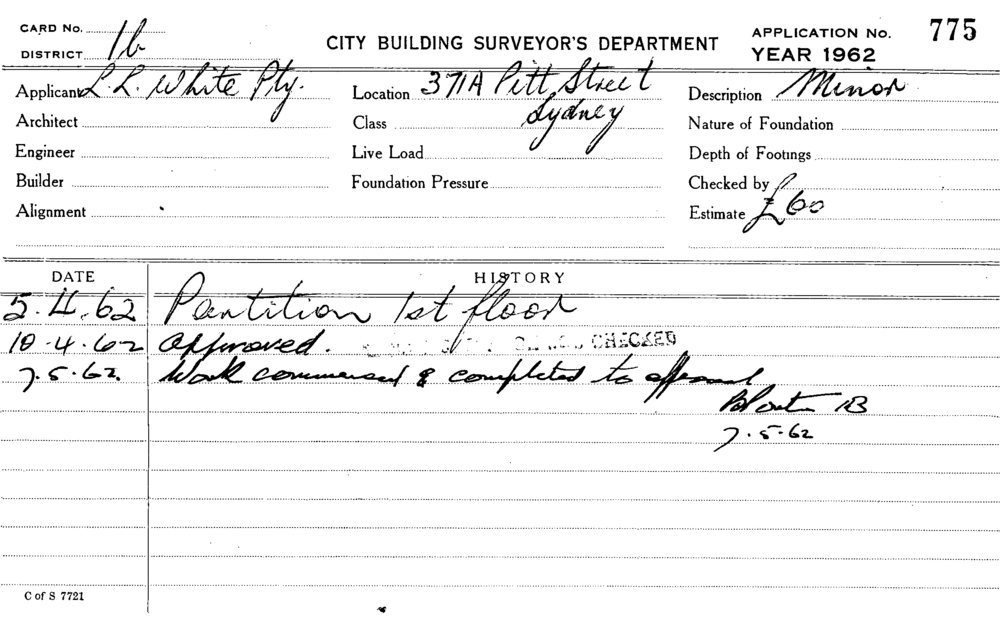 CARD No.
DISTRICT 1b
CITY BUILDING SURVEYOR'S DEPARTMENT
APPLICATION No. 775
YEAR 1962
Applicant L. L. White Pty.
Location 371A Pitt Street
Sydney
Description Minor
Architect
Class
Nature of Foundation
Engineer
Live Load
Depth of Footings
Builder
Foundation Pressure
Checked by
Alignment
Estimate £60
DATE HISTORY
5.4.62 Partition 1st floor
10.4.62 Approved. CHECKED
7.5.62. Work commenced & completed to approval
IB
7.5.62
C of S 7721